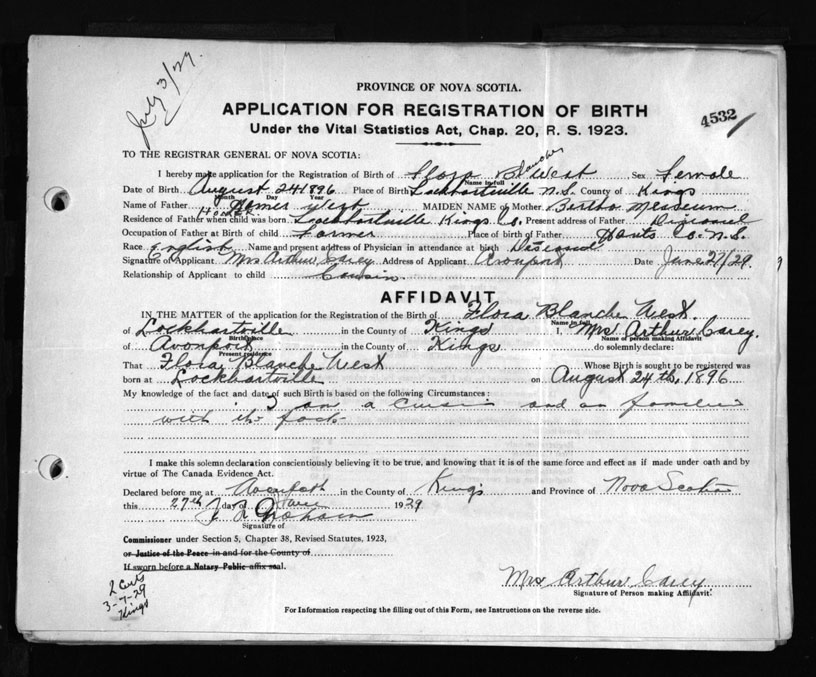 July 3/29.
PROVINCE OF NOVA SCOTIA.
APPLICATION FOR REGISTRATION OF BIRTH
4532
Under the Vital Statistics Act, Chap. 20, R. S. 1923.
TO THE REGISTRAR GENERAL OF NOVA SCOTIA:
I hereby make application for the Registration of Birth of Flora Blanche West Sex Female
Name in full
Date of Birth August 24 1896 Place of Birth Lockhartville N.S. County of Kings
Month Day Year
Name of Father Homer West MAIDEN NAME of Mother Bertha
Homer
Residence of Father when child was born Lockhartville Kings Co, Present address of Father
Occupation of Father at Birth of child Farmer Place of birth of Father Hants Co. N.S.
Race English Name and present address of Physician in attendance at birth
Signature of Applicant Mrs Arthur Carey Address of Applicant Avonport Date June 27/29.
Relationship of Applicant to child Cousin.
AFFIDAVIT
IN THE MATTER of the application for the Registration of the Birth of Flora Blanche West.
Name in full
of Lockhartville in the County of Kings I, Mrs Arthur Carey.
Birthplace Name of person making Affidavit
of Avonport in the County of Kings do solemnly declare:
Present residence
That Flora Blanche West Whose Birth is sought to be registered was
born at Lockhartville on August 24th, 1896
My knowledge of the fact and date of such Birth is based on the following Circumstances:
I am a and am
with the
I make this solemn declaration conscientiously believing it to be true, and knowing that it is of the same force and effect as if made under oath and by
virtue of The Canada Evidence Act.
Declared before me at in the County of Kings and Province of Nova Scotia
this 27th day of June 1929
Graham
Signature of
Commissioner under Section 5, Chapter 38, Revised Statutes, 1923,
or Justice of the Peace in and for the County of
If sworn before a Notary Public affix seal.
Mrs Arthur Carey.
Signature of Person making Affidavit.
2 Certs
3-7-29
Kings
For Information respecting the filling out of this Form, see Instructions on the reverse side.